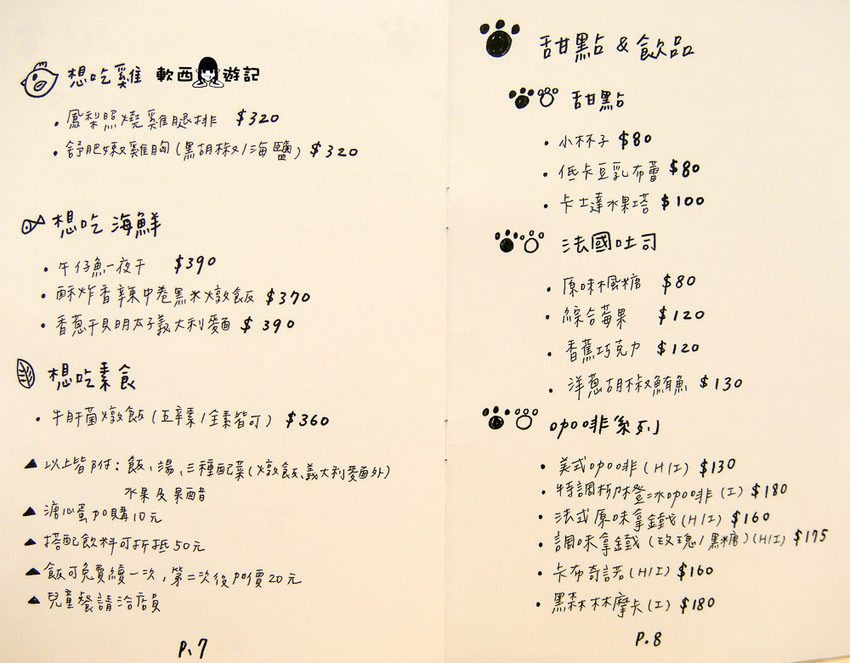 想吃雞 軟西遊記
• 鳳梨照燒雞腿排 $320
• 舒肥嫩雞胸(黑胡椒/海鹽) $320
想吃海鮮
• 午仔魚一夜干 $390
• 酥炸香辣中卷黑米燉飯 $370
• 香蔥干貝明太子義大利麵 $390
想吃素食
• 牛肝菌燉飯(五辛素/全素皆可) $360
▲ 以上皆附:飯、湯、三種配菜(燉飯、義大利麵外)
水果及果醋
▲ 溏心蛋加購10元
▲ 搭配飲料可折抵50元
▲ 飯可免費續一次,第二次後加價20元
▲ 兒童餐請洽店員
P.7
甜點 & 飲品
甜點
• 小杯子 $80
• 低卡豆乳布蕾 $80
• 卡士達水果塔 $100
法國吐司
• 原味楓糖 $80
• 綜合莓果 $120
• 香蕉巧克力 $120
• 洋蔥胡椒鮪魚 $130
咖啡系列
• 美式咖啡(H/I) $130
• 特調檸檬冰咖啡(I) $180
• 法式原味拿鐵(H/I) $160
• 調味拿鐵(玫瑰/黑糖)(H/I) $175
• 卡布奇諾(H/I) $160
• 黑森林摩卡(I) $180
P.8